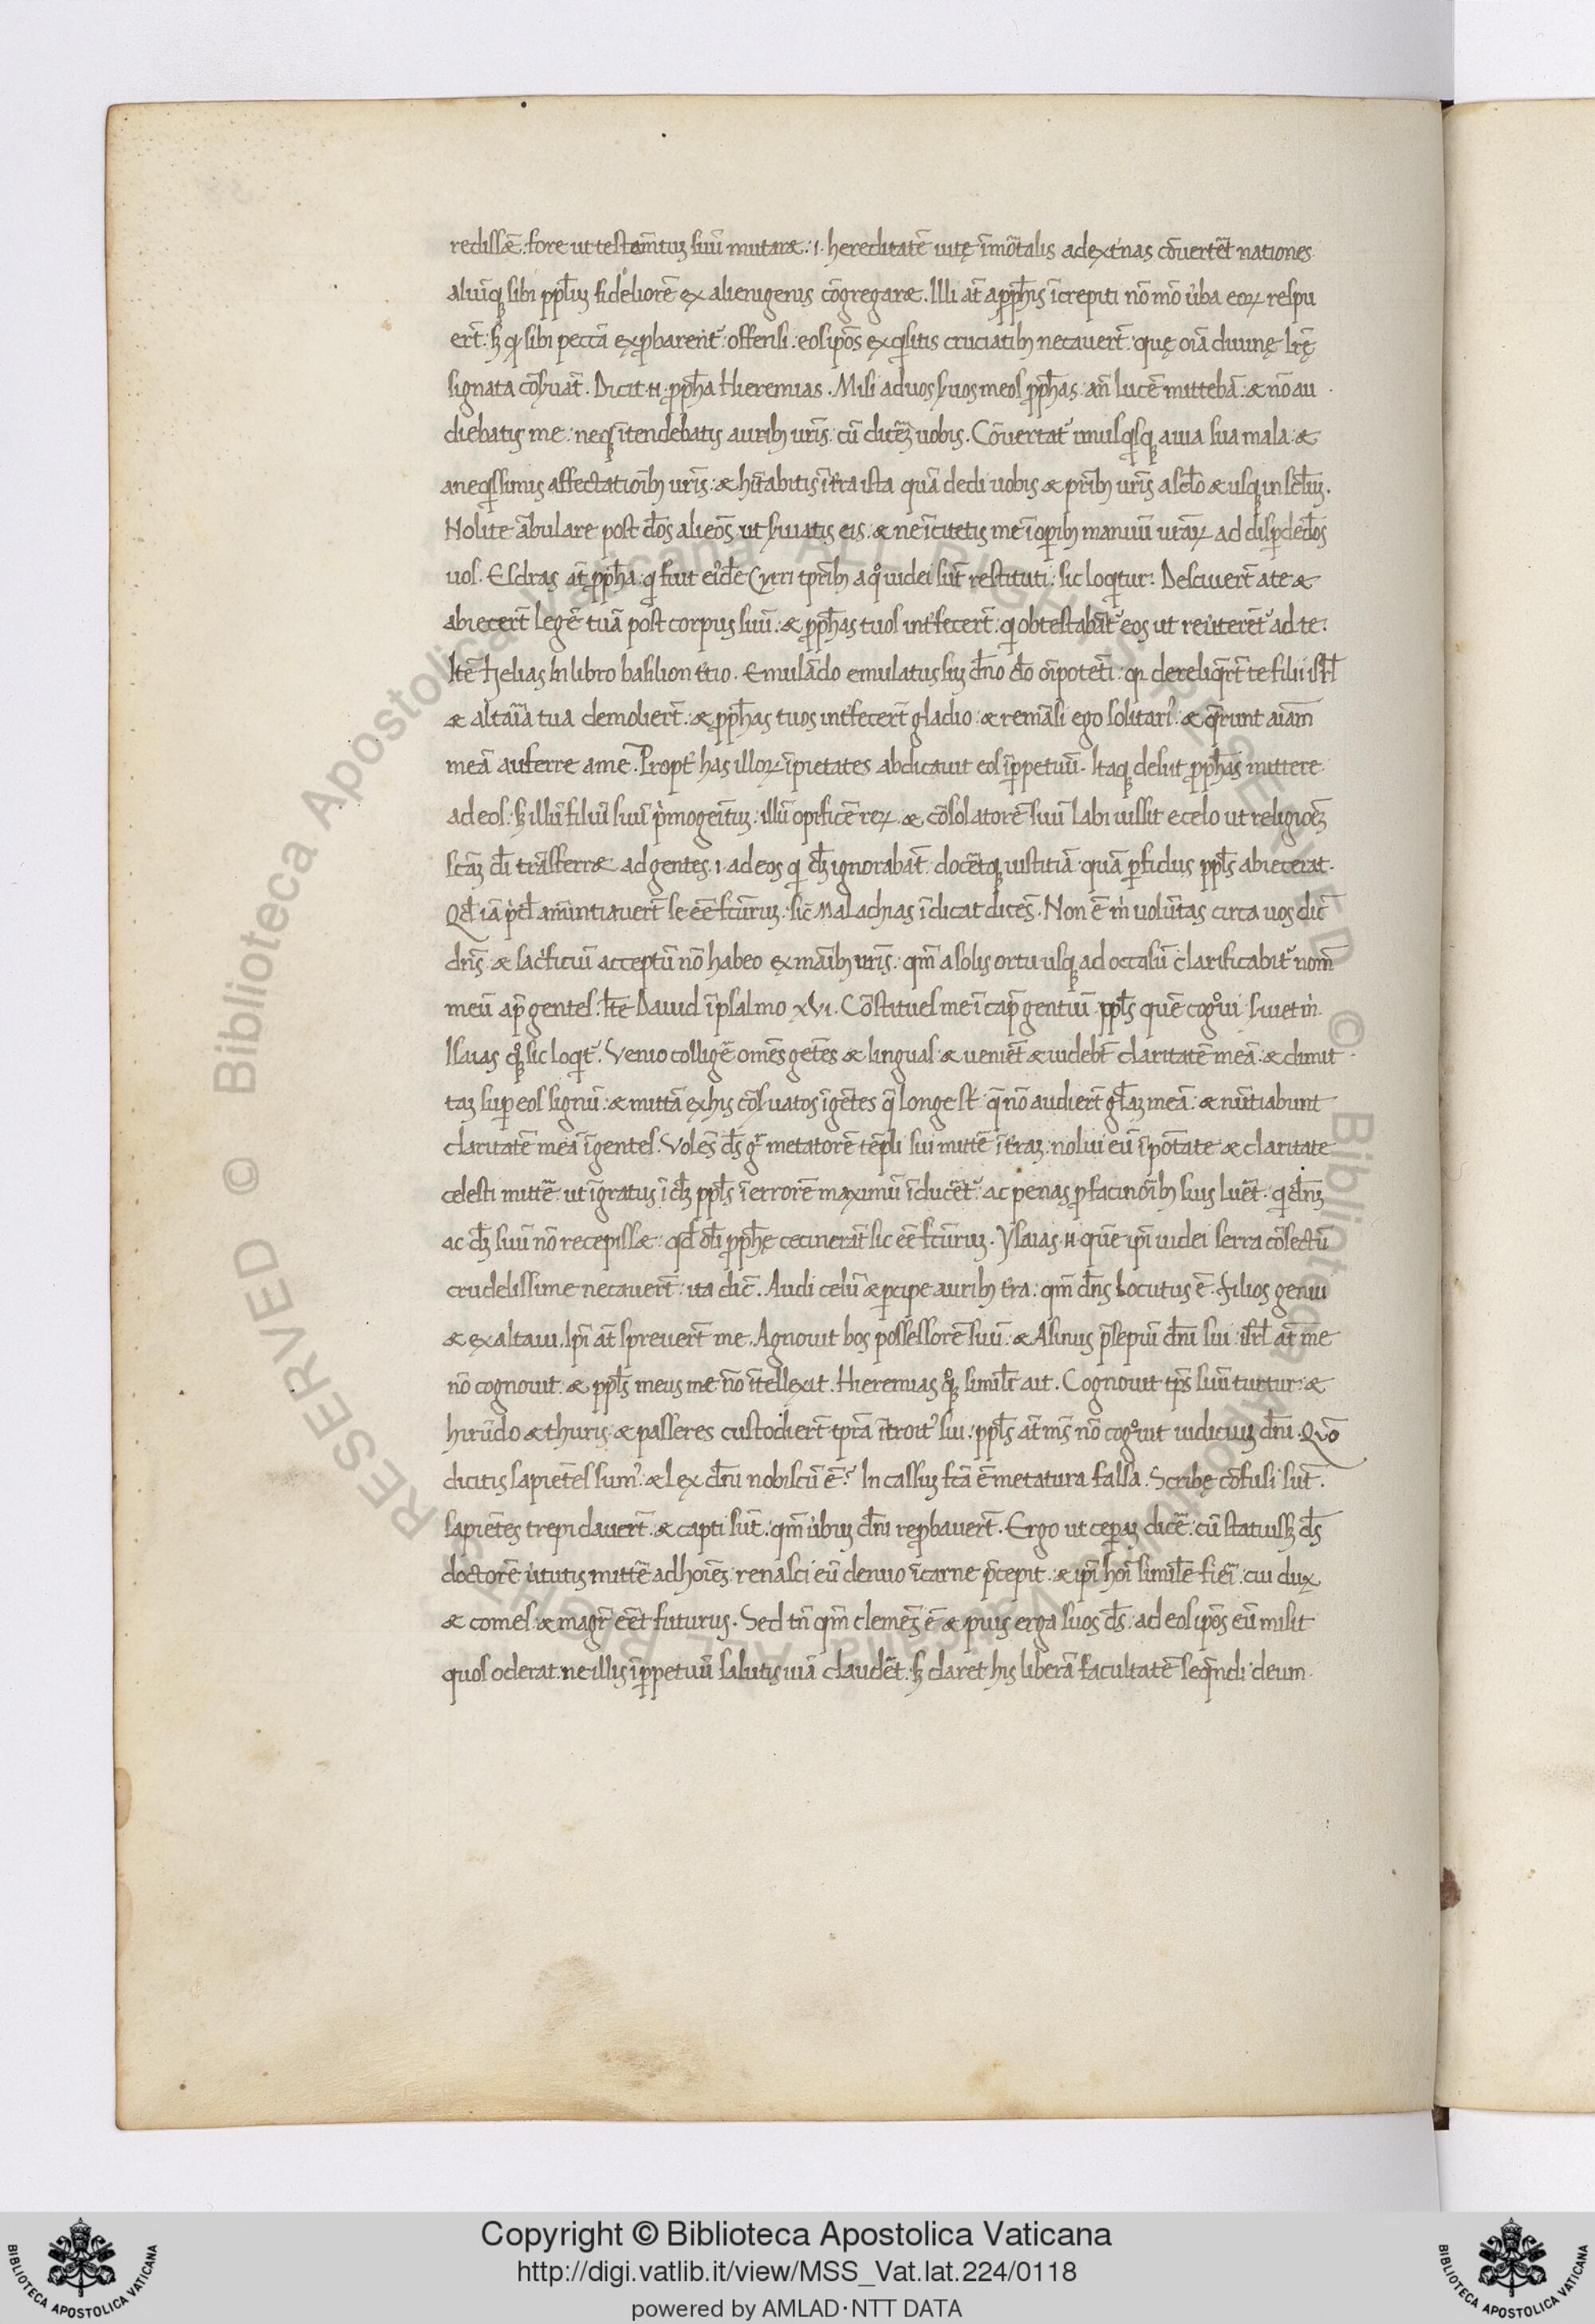 redissæ̃. fore ut testam̃tuȝ suũ mutaræ. .i. hereditatẽ uitę ĩmõtalis ad ext̾nas cõuertẽt nationes
aliũq; sibi pp̃luȝ fideliorẽ ex alienigenis cõgregaræ. Illi aũt a pp̃his ĩcrepiti nõ mõ ũba eoꝝ respu
ert̃. sȝ qꝫ sibi pecc̃a exp̃barent̾. offensi. eos ip̃os exq̾sitis cruciatibȝ necauert̃. quę oĩa diuinę lr̃ę
signata cõs̾uãt. Dicit .n. pp̃ha Hieremias. Misi ad uos s̾uos meos pp̃has. añ lucẽ mittebã. æ nõ au
diebatis me. neq; ĩtendebatis auribȝ ur̃is. cũ dicẽȝ uobis. Cõuertat̾ unusq̾sq; a uia sua mala. æ
a neq̾ssimis affectatiõibȝ ur̃is. æ hĩtabitis ĩ t̃ra ista quã dedi uobis æ pr̃ibȝ ur̃is a sc̃lo æ usq; in sc̃luȝ.
Nolite ãbulare post d̃os alieõs ut s̾uiatis eis. æ ne ĩcitetis me ĩ op̃ibȝ manuũ ur̃aꝝ ad disp̃dẽdos
uos. Esdras aũt pp̃ha q̾ fuit ei̾dẽ Cyri tp̃ribȝ a q°iudei sũt restituti. sic loq̾tur. Desciuert̃ a te æ
abiecert̃ legẽ tuã post corpus suũ. æ pp̃has tuos int̾fecert̃. q̾ obtestabãt̾ eos ut reũterẽt̾ ad te.
Itẽ Helias in libro basilion t̾tio. Emulãdo emulatus suȝ dño d̃o oĩpotẽti. qꝫ dereliq̃rt̃ te filii isr̃l
æ altaĩa tua demoliert̃. æ pp̃has tuos int̾fecert̃ gladio. æ remãsi ego solitari̾. æ q̃runt aiam̃
meã auferre a me. Propt̾ has illoꝝ ĩpietates abdicauit eos ĩp̃petuũ. Itaq; desiit pp̃has mittere
ad eos. sȝ illũ filiũ suũ p̾mogeĩtuȝ. illũ opificẽ reꝝ. æ cõsolatorẽ suũ labi iussit e celo ut religiõeȝ
sc̃aȝ d̃i trãsferræ ad gentes .i. ad eos q̾ d̃ȝ ignorabãt. docẽtq; iustitiã. quã p̃fidus pp̃ls abiecerat.
Qd̃ iã p̾d̃ añũntiauert̃ se eẽ fc̃turuȝ. sic̃ Malachias ĩdicat dicẽs. Non ẽ m̾ volũtas circa uos dic̃
dñs. æ sac̾ficiũ acceptũ nõ habeo ex mãibȝ ur̃is. qm̃ a solis ortu usq; ad occasũ clarificabit̾ nom̃
meũ ap̃ gentes. Itẽ Dauid ĩ psalmo xvi. Cõstitues me ĩ cap̃ gentiũ. pp̃ls quẽ cog°ui. s̾uiet m̾.
Isaias q°ꝗ sic loq̾t̾. Venio colligẽ omẽs gẽtes æ linguas. æ ueniẽt æ uidebt̃ claritatẽ meã. æ dimit
taȝ sup̃ eos signũ. æ mittã ex his cõs̾uatos ĩ gẽtes q̃ longe st̃. q̃ nõ audiert̃ gl̃aȝ meã. æ nũtiabunt
claritatẽ meã ĩ gentes. Volẽs d̃s g̾ metatorẽ tẽpli sui mittẽ ĩ t̃raȝ. noluit eũ ĩ potãte æ claritate
celesti mittẽ. ut ĩgratus ĩ d̃ȝ pp̃ls ĩ errorẽ maximũ ĩducẽt̾. ac penas p̃ facinõibȝ suis luẽt. q̾ dñȝ
ac d̃ȝ suũ nõ recepissæ. qd̃ oĩ pp̃hę cecinerãt sic eẽ fc̃turuȝ. Ysaias .n. quẽ ip̃i iudei serra cõsectũ
crudelissime necauert̃. ita dic̃. Audi celũ æ p̃cipe auribȝ t̃ra. qm̃ dñs locutus ẽ. filios genui
æ exaltaui. ip̃i aũt spreuert̃ me. Agnouit bos possessorẽ suũ. æ Asinus p̃sepiũ dñi sui. isr̃l aũt me
nõ cognouit. æ pp̃ls meus me nõ ĩtellexit. Hieremias q°ꝗ simil̃r ait. Cognouit tp̃s suũ turtur. æ
hirũdo æ thuris. æ passeres custodiert̃ tp̃ra ĩtroit̾ sui. pp̃ls aũt m̃s nõ cog°uit iudiciuȝ dñi. Quõ
dicitis sapiẽtes sum̾. æ lex dñi nobiscũ ẽ? In cassuȝ fc̃a ẽ metatura falsa. Scribę cõfusi sũt.
sapiẽtes trepidauert̃. æ capti sũt. qm̃ ũbuȝ dñi rep̃bauert̃. Ergo ut cep̃aȝ dicẽ. cũ statuissȝ d̃s
doctorẽ ũtutis mittẽ ad hoĩes. renasci eũ denuo ĩ carne p̃cepit. æ ip̃i hoĩ simil̃e fiẽi. cui dux
æ comes. æ magr̃ eẽt futurus. Sed tñ qm̃ clemẽs ẽ æ pius erga suos d̃s. ad eos ip̃os eũ misit
quos oderat. ne illis ĩp̃petuũ salutis uiã claudẽt. sȝ daret his liberã facultatẽ seq̃ndi deum.
Copyright © Biblioteca Apostolica Vaticana
http://digi.vatlib.it/view/MSS_Vat.lat.224/0118
powered by AMLAD·NTT DATA